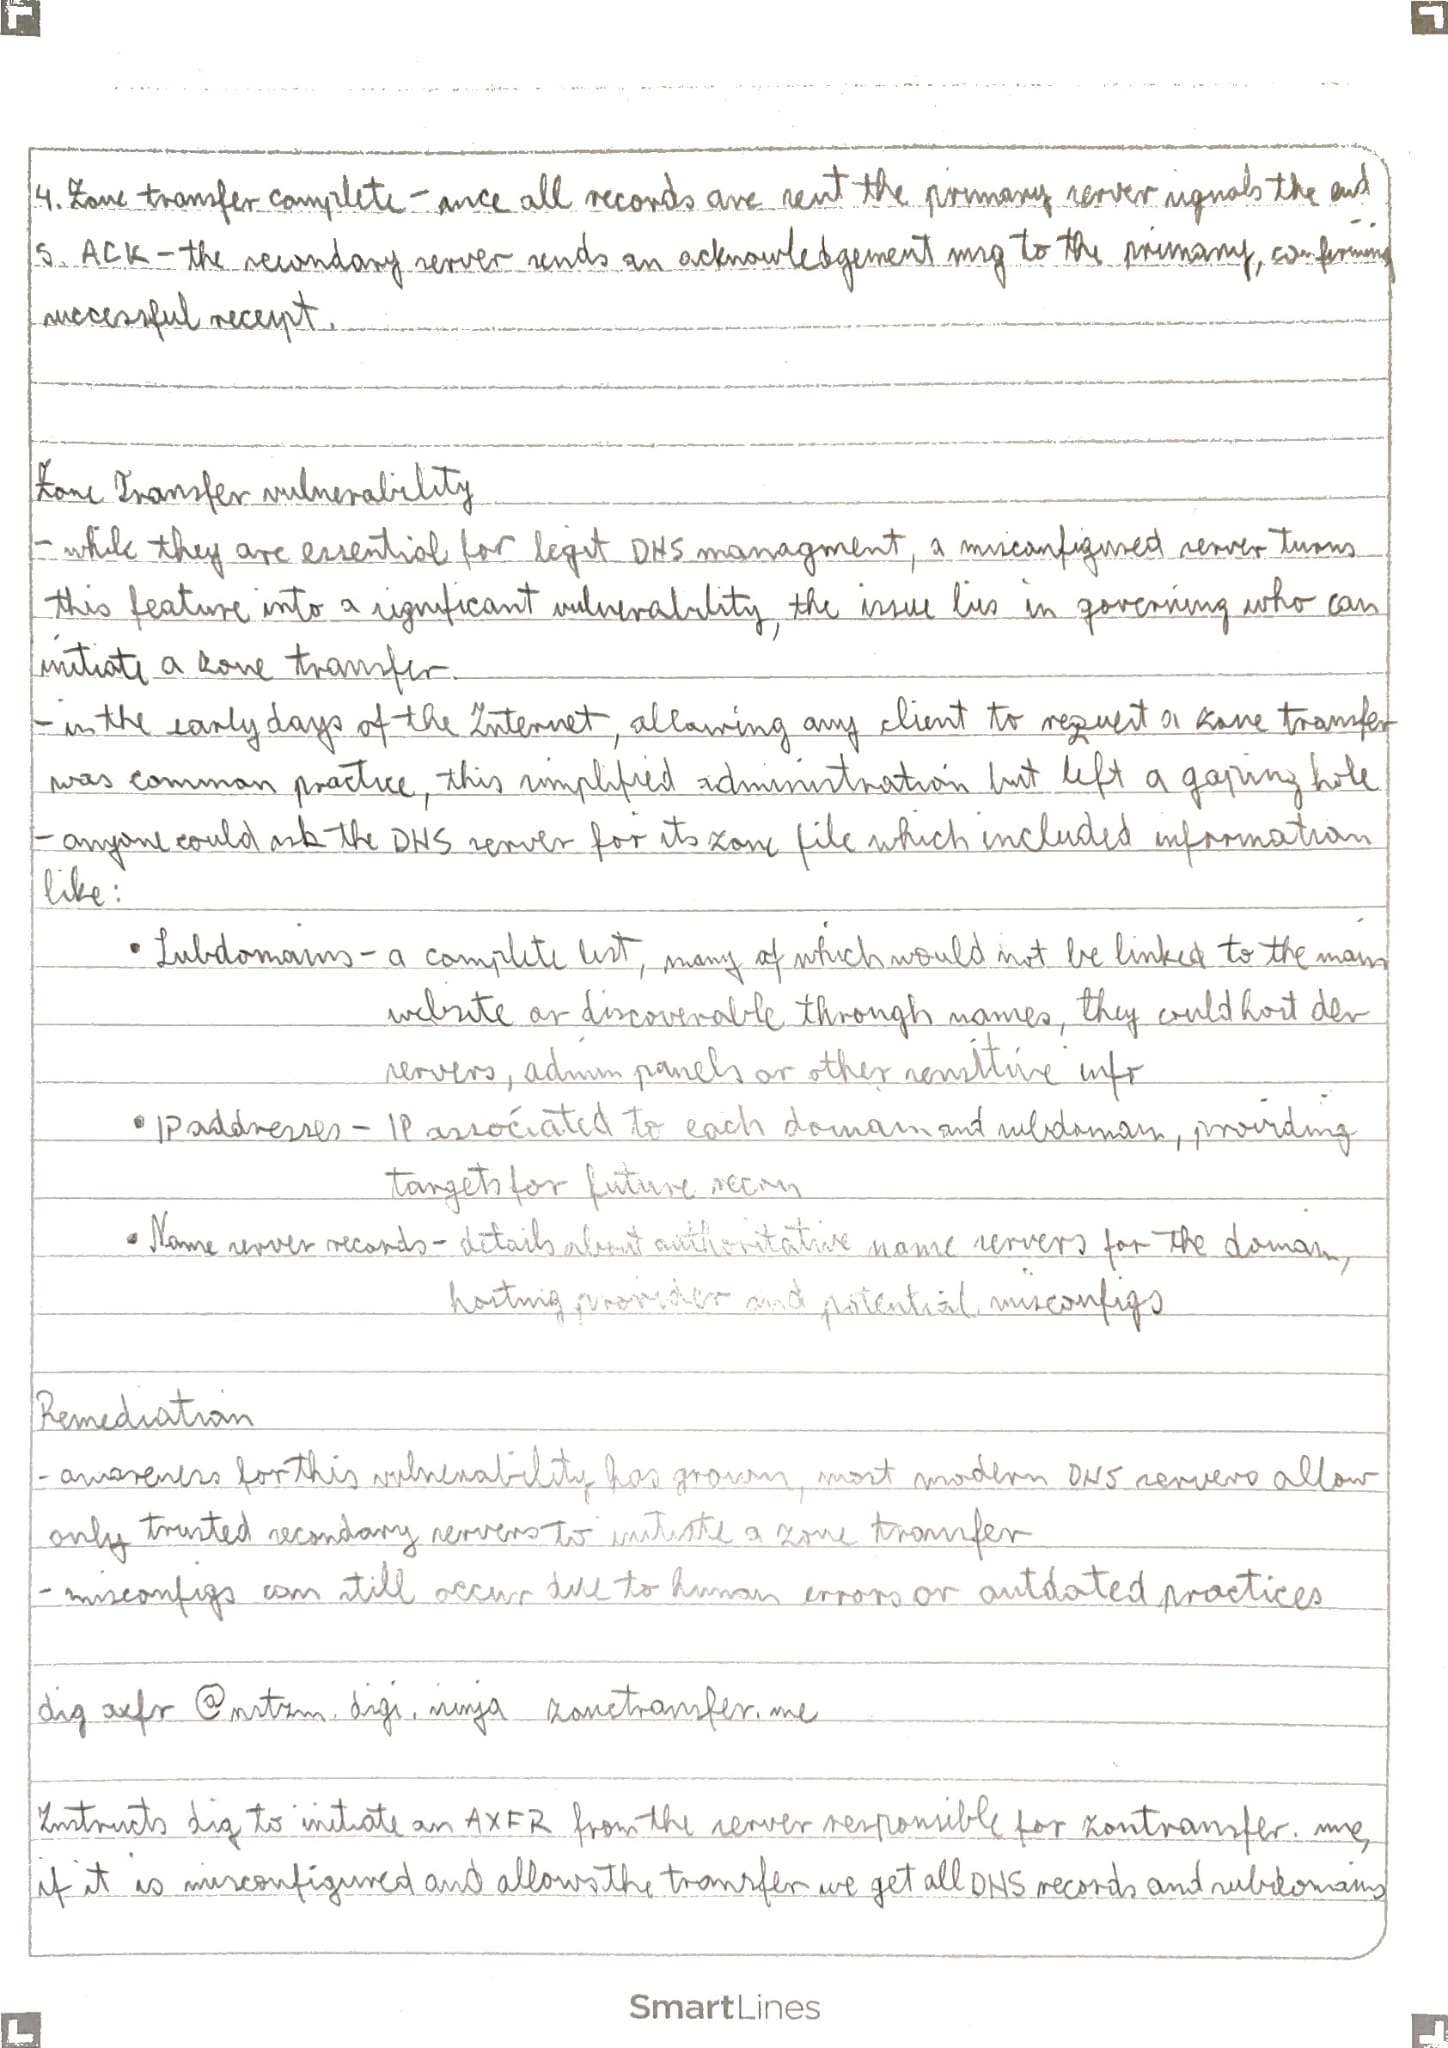 4. Zone transfer complete - once all records are sent the primary server signals the end
5. ACK - the secondary server sends an acknowledgement msg to the primary, confirming
successful receipt.
Zone Transfer vulnerability
- while they are essential for legit DNS managment, a misconfigured server turns
this feature into a significant vulnerability, the issue lies in governing who can
initiate a zone transfer.
- in the early days of the Internet, allowing any client to request a zone transfer
was common practice, this simplified administration but left a gaping hole
- anyone could ask the DNS server for its zone file which included information
like:
• Subdomains - a complete list, many of which would not be linked to the main
website or discoverable through names, they could host dev
servers, admin panels or other sensitive infr
• IP addresses - IP associated to each domain and subdomain, providing
targets for future recon
• Name server records - details about authoritative name servers for the domain,
hosting provider and potential misconfigs
Remediation
- awareness for this vulnerability has grown, most modern DNS servers allow
only trusted secondary servers to initiate a zone transfer
- misconfigs can still occur due to human errors or outdated practices
dig axfr @nsztm.digi.ninja zonetransfer.me
Instructs dig to initiate an AXFR from the server responsible for zontransfer.me,
if it is misconfigured and allows the transfer we get all DNS records and subdomains
SmartLines